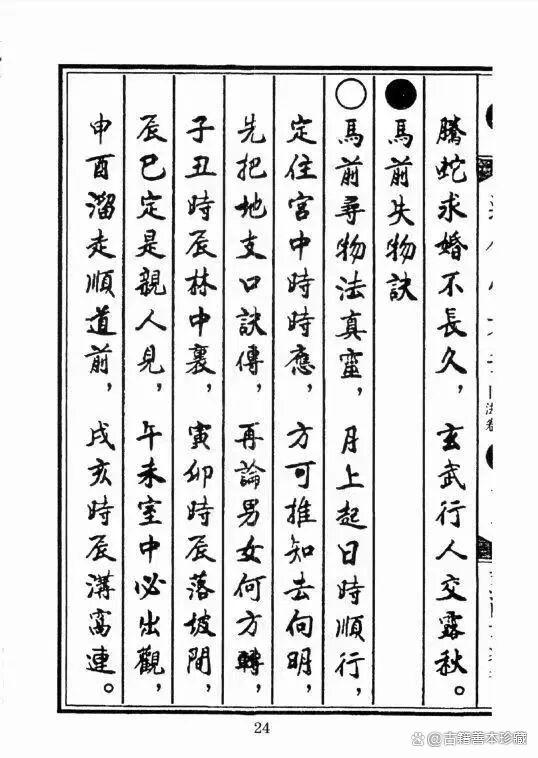 騰蛇求婚不長久，玄武行人交露秋。
●馬前失物訣
○馬前尋物法真靈，月上起日時順行，
定住宮中時時應，方可推知去向明，
先把地支口訣傳，再論男女何方轉，
子丑時辰林中裏，寅卯時辰落坡間，
辰巳定是親人見，午未室中必出觀，
申酉溜走順道前，戌亥時辰溝窩連。
24
古籍善本珍藏